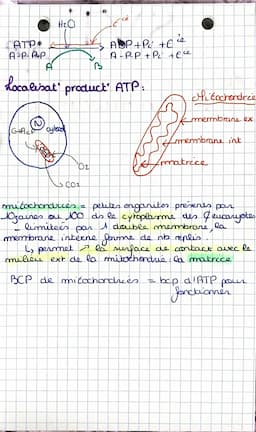 H2O
ATP ADP + Pi + E
A-P-P-P A-P-P + Pi + E
A B
Localisat° product° ATP :
Mitochondrie
N
cytosol
membrane ex
membrane int
matrice
O2
CO2
mitochondries = petites organites présents par
dizaines ou 100 ds le cytoplasme des ¢ eucaryotes
- limitées par 1 double membrane, la
membrane interne forme de nb replis
↳ permet ↗ la surface de contact avec le
milieu ext de la mitochondrie : la matrice
BCP de mitochondries = bcp d'ATP pour
fonctionner